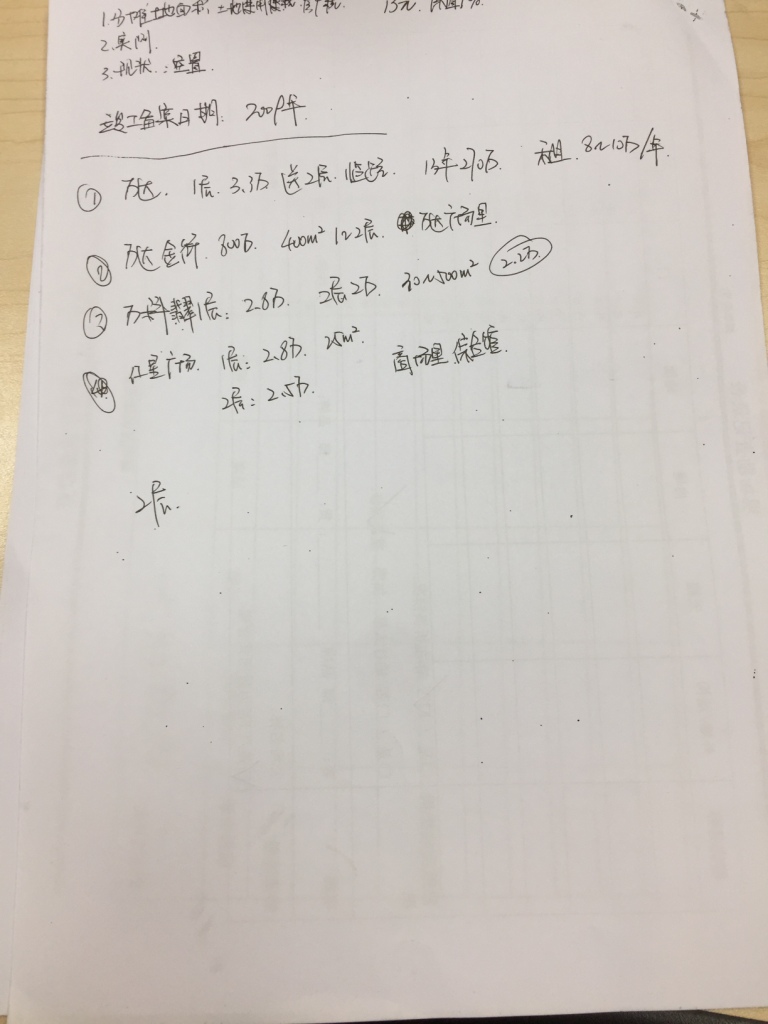 1.分摊土地面积, 土地使用权税.房产税. 13元.
2.案例.
3.现状:空置.
竣工备案日期: 2009年.
① 万达. 1层 3.3万 送2层. 临边 13年270万. 租. 8~10万/年.
② 万达金街. 800万. 400m² 1~2层. 万达广场里.
③ 万科 1层: 2.8万. 2层2万. 30~500m² 2.2万
④ 红星广场. 1层: 2.8万. 25m². 商场里
2层: 2.5万.
2层.